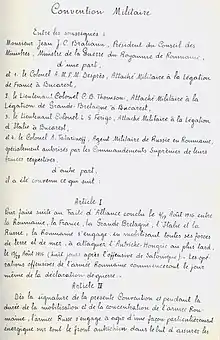 Convention Militaire
Entre les soussignés :
Monsieur Jean J. C. Bratianu, Président du Conseil des
Ministres, Ministre de la Guerre du Royaume de Roumanie,
d'une part,
et 1. le Colonel Després, Attaché Militaire à la Légation
de France à Bucarest,
2. le Lieutenant Colonel C. B. Thomson, Attaché Militaire à la
Légation de Grande-Bretagne à Bucarest,
3. le Lieutenant Colonel Ferigo, Attaché Militaire à la Légation
d'Italie à Bucarest,
et 4. le Colonel A. Tatarinoff, Agent Militaire de Russie en Roumanie,
spécialement autorisés par les Commandements Suprêmes de leurs
forces respectives,
d'autre part,
il a été convenu ce qui suit :
Article I
Par suite du Traité d'Alliance conclu le 4/17 Août 1916 entre
la Roumanie, la France, la Grande Bretagne, l'Italie et la
Russie, la Roumanie s'engage, en mobilisant toutes ses forces
de terre et de mer, à attaquer l'Autriche-Hongrie au plus tard
le 15/28 Août 1916 (huit jours après l'offensive de Salonique). Les opé-
rations offensives de l'armée Roumaine commenceront le jour
même de la déclaration de guerre.
Article II
Dès la signature de la présente Convention et pendant la
durée de la mobilisation et de la concentration de l'armée Rou-
maine, l'armée Russe s'engage à agir d'une façon particulièrement
énergique sur tout le front Autrichien dans le but d'assurer les